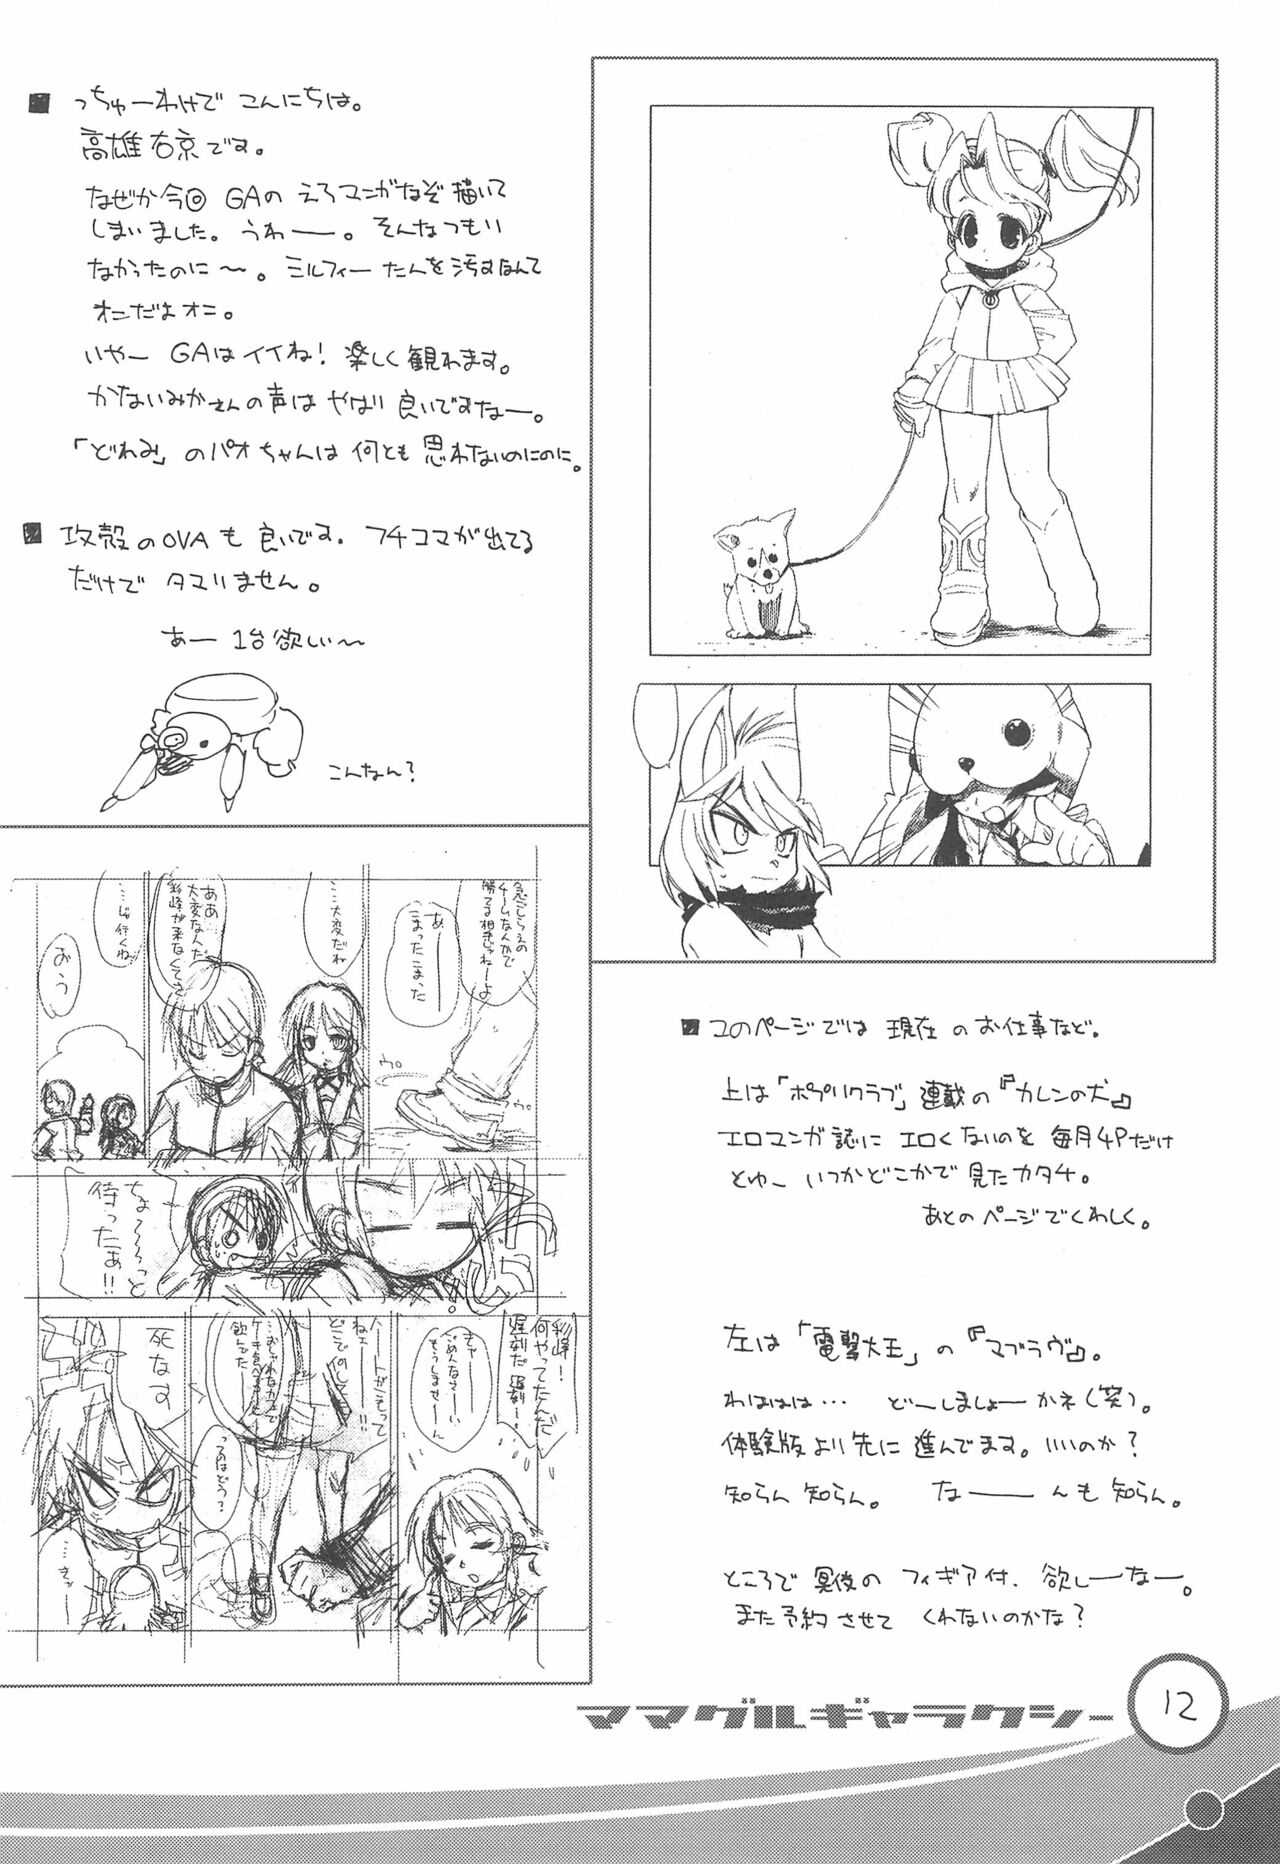 ■ っちゅーわけで こんにちは。
高雄右京です。
なぜか今回 GAの えろマンガなぞ 描いて
しまいました。うわー。そんなつもり
なかったのに〜。ミルフィーたんを汚すなんて
オニだよオニ。
いやー GAはイイね! 楽しく観れます。
かないみかさんの声は やはり 良いですなー。
「どれみ」のパオちゃんは 何とも 思わないのにのに。
■ 攻殻のOVAも 良いです。フチコマが出てる
だけで タマりません。
あー 1台欲しい〜
こんなん?
急ごしらえの
チームなんかで
勝てる相手じゃねーよ
あー
まったこまった
…大変だね
ああ…
大変なんだ
彩峰が来なくてさ
……じゃ行くね
おう
ちょ〜〜っと
待ったぁ!!
彩峰!
何やってたんだ
遅刻だ 遅刻ー!
きゃー
ごめんなさーい
もうしませーん
ケーキ食べ
飲んでた…
死なす
■ このページでは 現在 のお仕事など。
上は「ポプリクラブ」連載の『カレンの犬』
エロマンガ誌に エロくないのを 毎月4Pだけ
とゆー いつかどこかで 見たカタチ。
あとのページでくわしく。
左は「電撃大王」の『マブラヴ』。
わははは… どーしましょーかネ(笑)。
体験版より先に 進んでます。いいのか?
知らん 知らん。 なーーんも 知らん。
ところで 冥夜の フィギア付、欲しーなー。
また予約させて くれないのかな?
ママグルギャラクシー
12